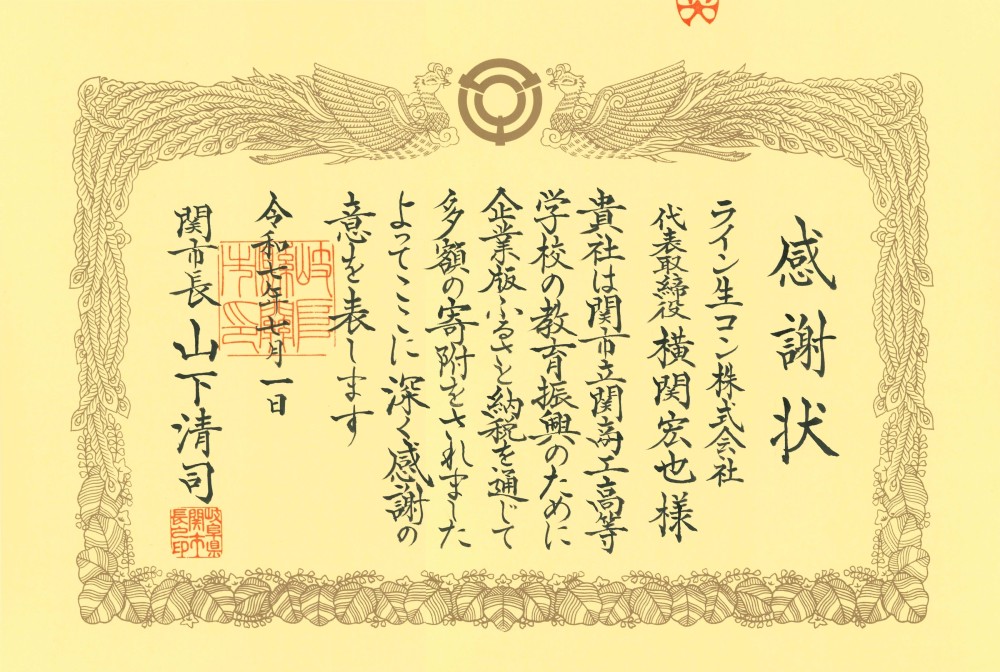 感謝状
ライン生コン株式会社
代表取締役 横関宏也様
貴社は関市立関商工高等
学校の教育振興のために
企業版ふるさと納税を通じて
多額の寄附をされました
よってここに深く感謝の
意を表します
令和七年七月一日
関市長 山下清司
岐阜県関市長之印